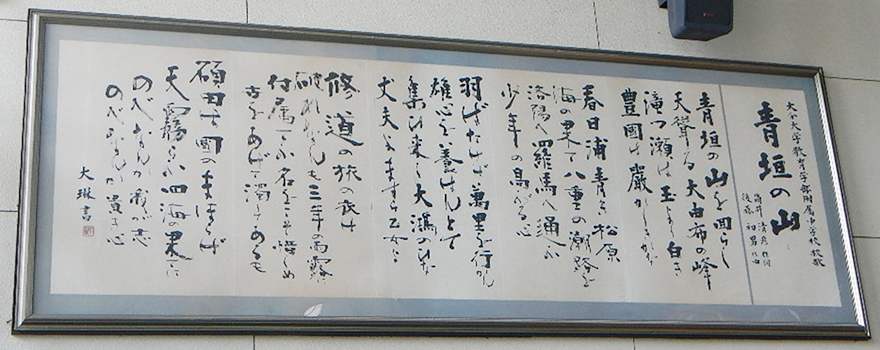 大分大学教育学部附属中学校校歌
青垣の山
筒井清彦作詞
後藤初男作曲
青垣の山を回らし
天聳る大由布の峰
滝つ瀬は玉より白き
豊國は嚴しきかな
春日浦青き松原
海の果て八重の潮路を
洛陽へ羅馬へ通ふ
少年の高がる心
羽ばたけば萬里を行かん
雄心を養はんとて
集ひ来し大鵬のひな
丈夫とますら乙女は
修道の旅の衣は
破れなんも三年の雨露
付属てふ名をこそ惜しめ
をあげて濁してあるも
碩田は國のまほらば
天霧らふ四海の果てに
のべなんか我が志
のべなんか貴き心
大琳書